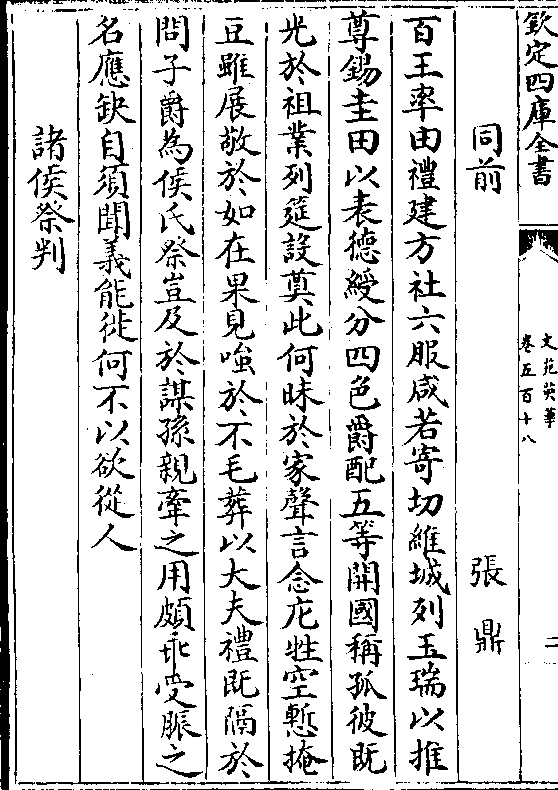 欽定四庫全書
文苑英華
卷五百十八
二
同前
張鼎
百王率由禮建方社六服咸若寄切維城列玉瑞以推
尊錫圭田以表德綬分四色爵配五等開國稱孤彼既
光於祖業列筵設奠此何昧於家聲言念庀牲空慙掩
豆雖展敬於如在果見嗤於不毛葬以大夫禮既隔於
問子爵為侯氏祭豈及於謀孫親牽之用頗乖受脤之
名應缺自須聞義能徙何不以欲從人
諸侯祭判